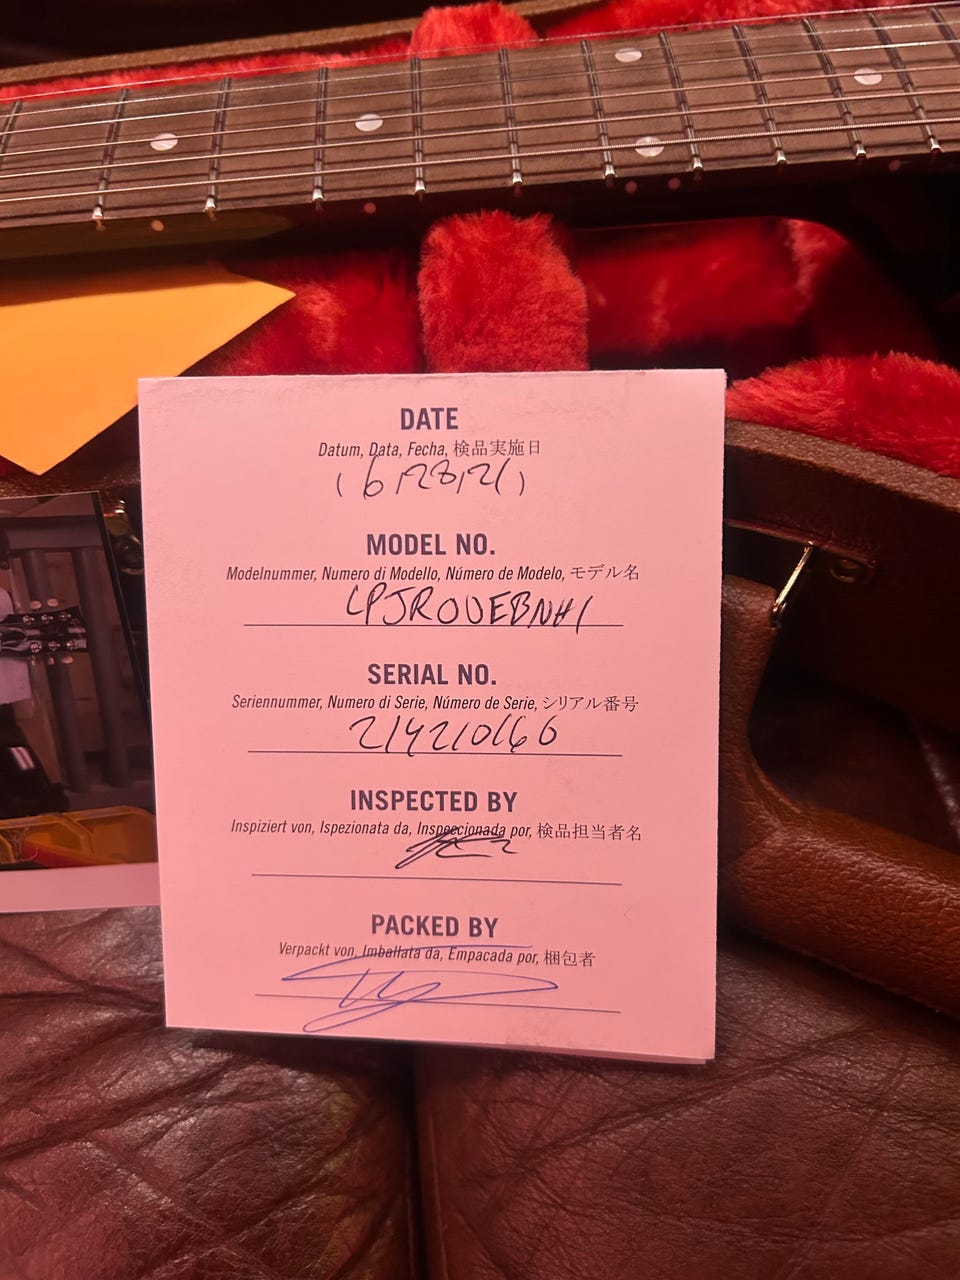 DATE
Datum, Data, Fecha, 検品実施日
(6/28/21)
MODEL NO.
Modelnummer, Numero di Modello, Número de Modelo, モデル名
LPJR00EBNH1
SERIAL NO.
Seriennummer, Numero di Serie, Número de Serie, シリアル番号
214210166
INSPECTED BY
Inspiziert von, Ispezionata da, Inspeccionada por, 検品担当者名
PACKED BY
Verpackt von, Imballata da, Empacada por, 梱包者